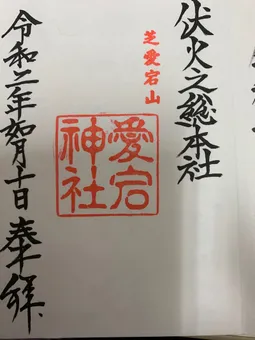 伏火之総本社
芝愛宕山
愛宕
神社
令和二年如月十日 奉拝